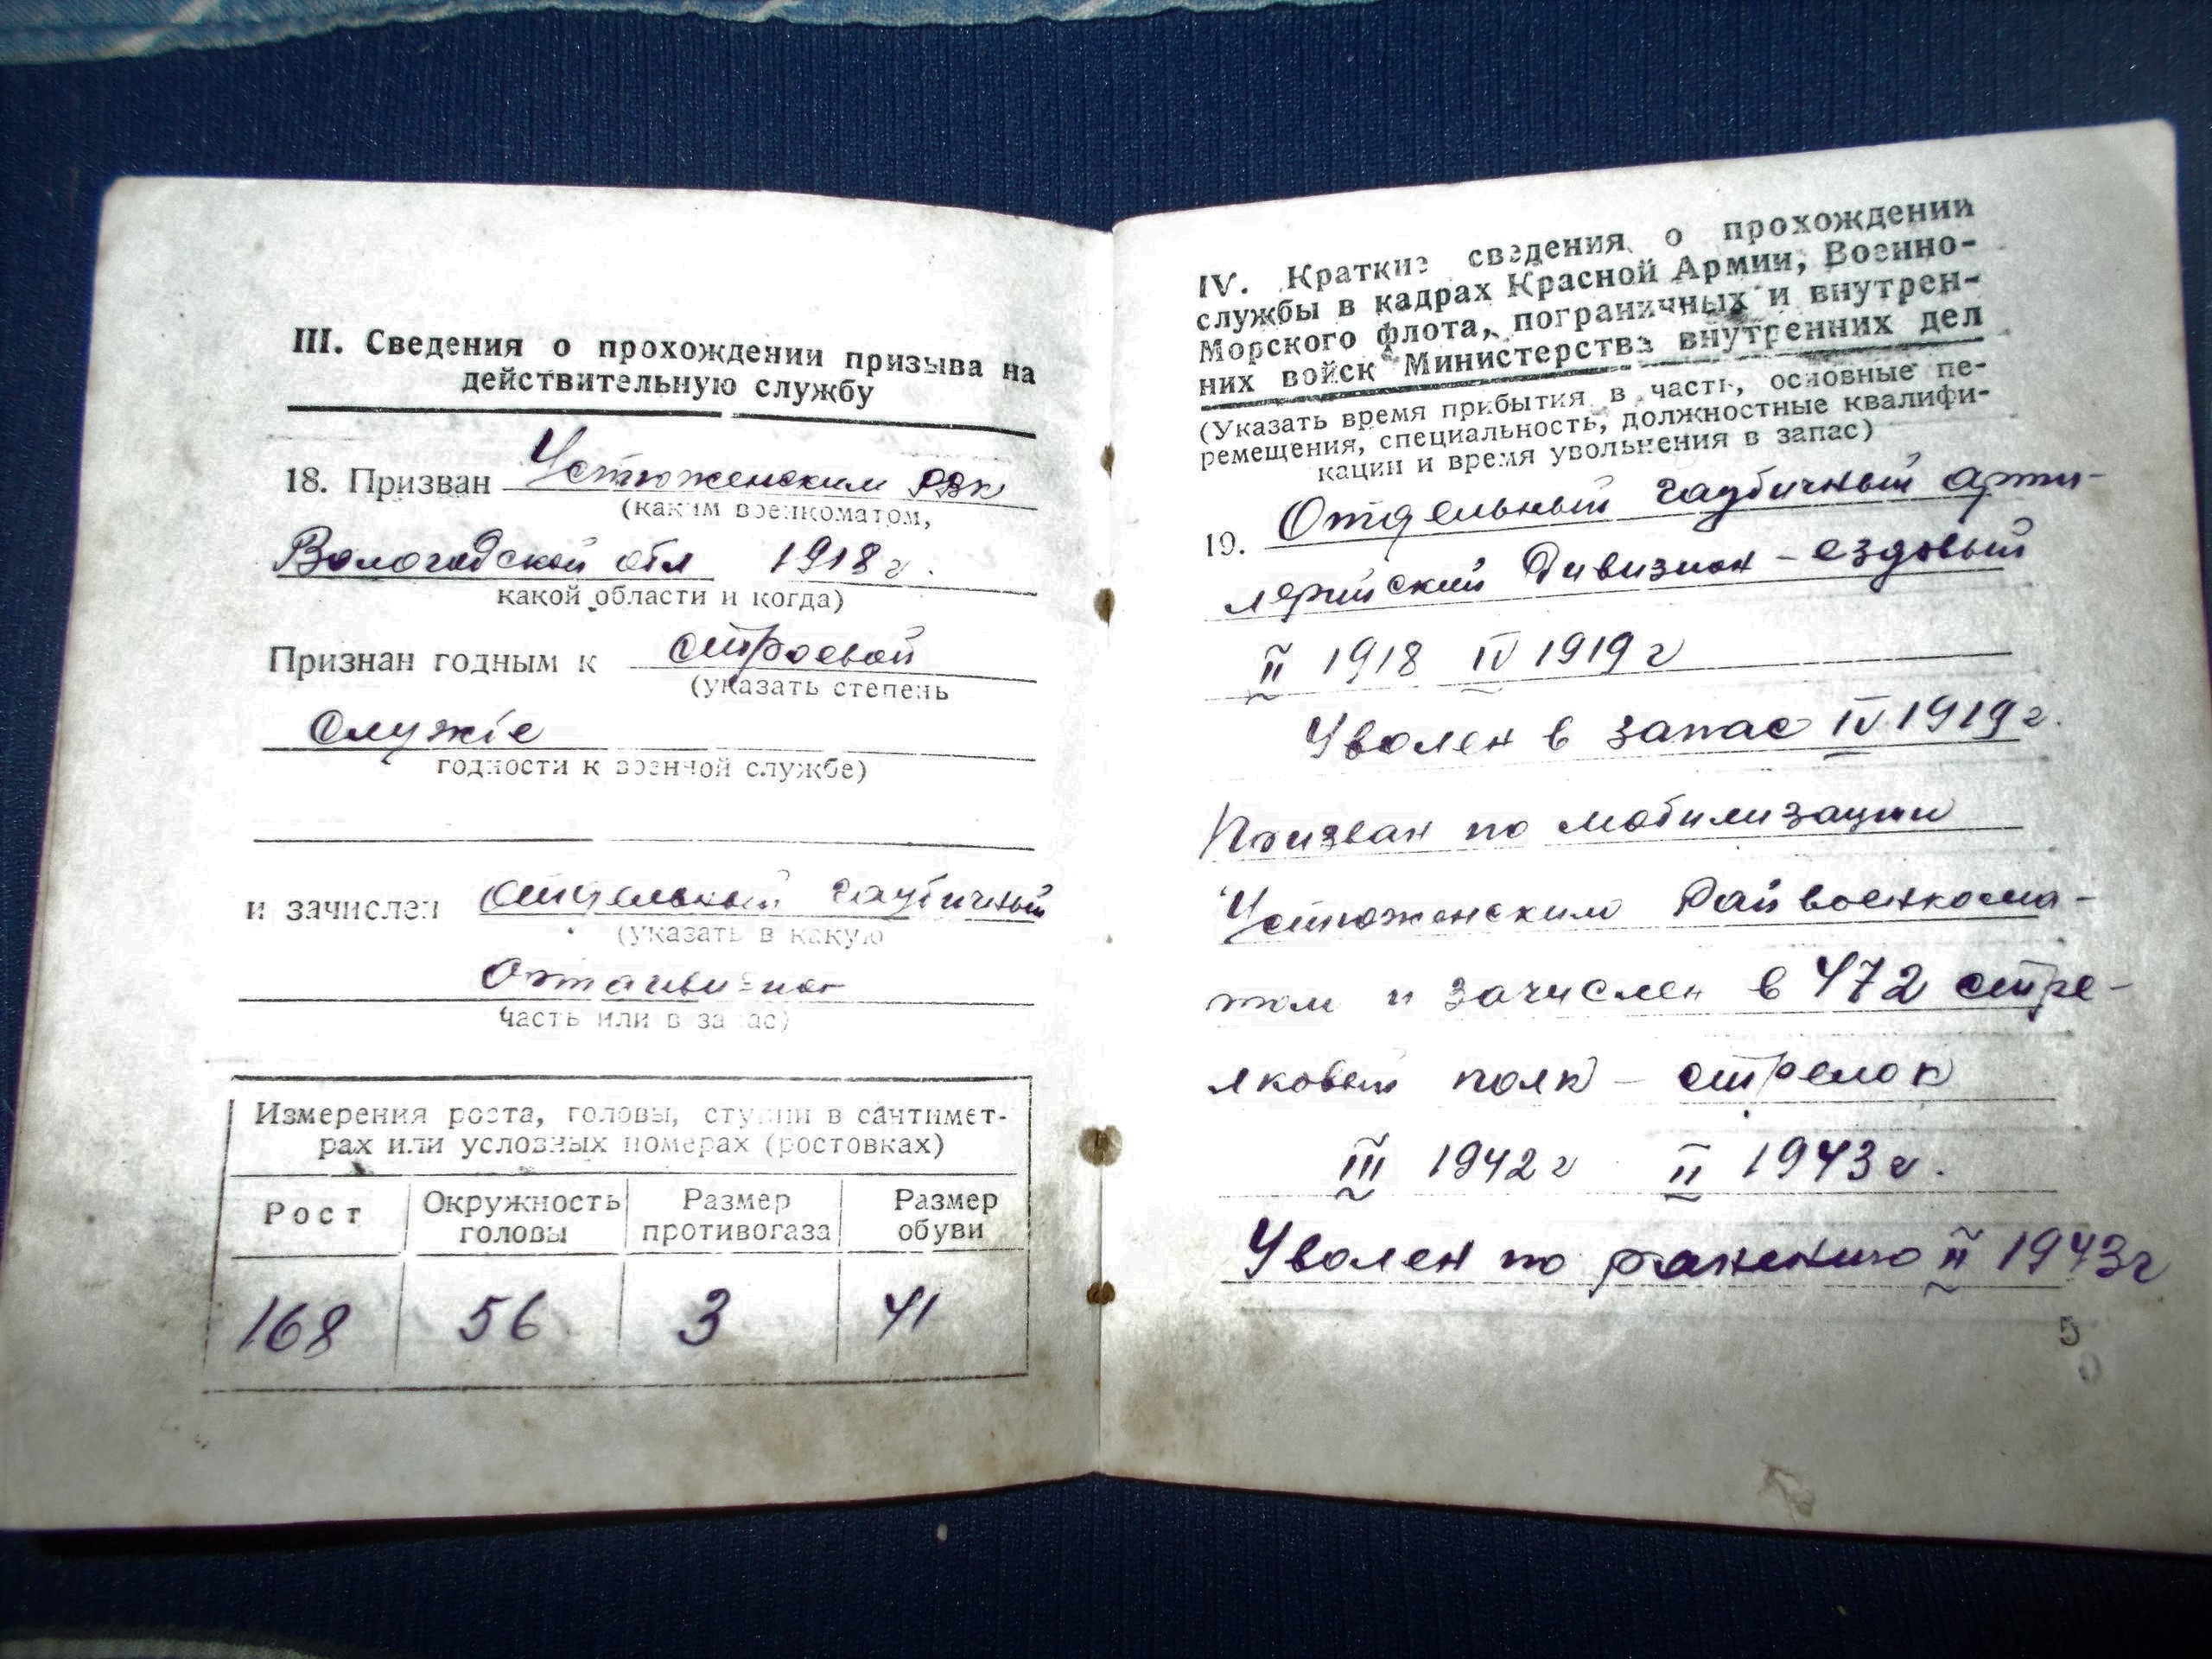 III. Сведения о прохождении призыва на
действительную службу
18. Призван Устюженским РВК
(каким военкоматом,
Вологодской обл 1918 г.
какой области и когда)
Признан годным к строевой
(указать степень
службе
годности к военной службе)
и зачислен Отдельный гаубичный
(указать в какую
часть или в запас)
Измерения роста, головы, ступни в сантимет-
рах или условных номерах (ростовках)
Рост Окружность головы Размер противогаза Размер обуви
168 56 3 41
IV. Краткие сведения о прохождении
службы в кадрах Красной Армии, Военно-
Морского флота, пограничных и внутрен-
них войск Министерства внутренних дел
(Указать время прибытия в часть, основные пе-
ремещения, специальность, должностные квалифи-
кации и время увольнения в запас)
19. Отдельный гаубичный арти-
лерийский дивизион - ездовый
II 1918 IV 1919 г
Уволен в запас IV 1919 г.
Призван по мобилизации
Устюженским Райвоенкома-
том и зачислен в 472 стре-
лковый полк - стрелок
III 1942 г II 1943 г.
Уволен по ранению II 1943 г
5